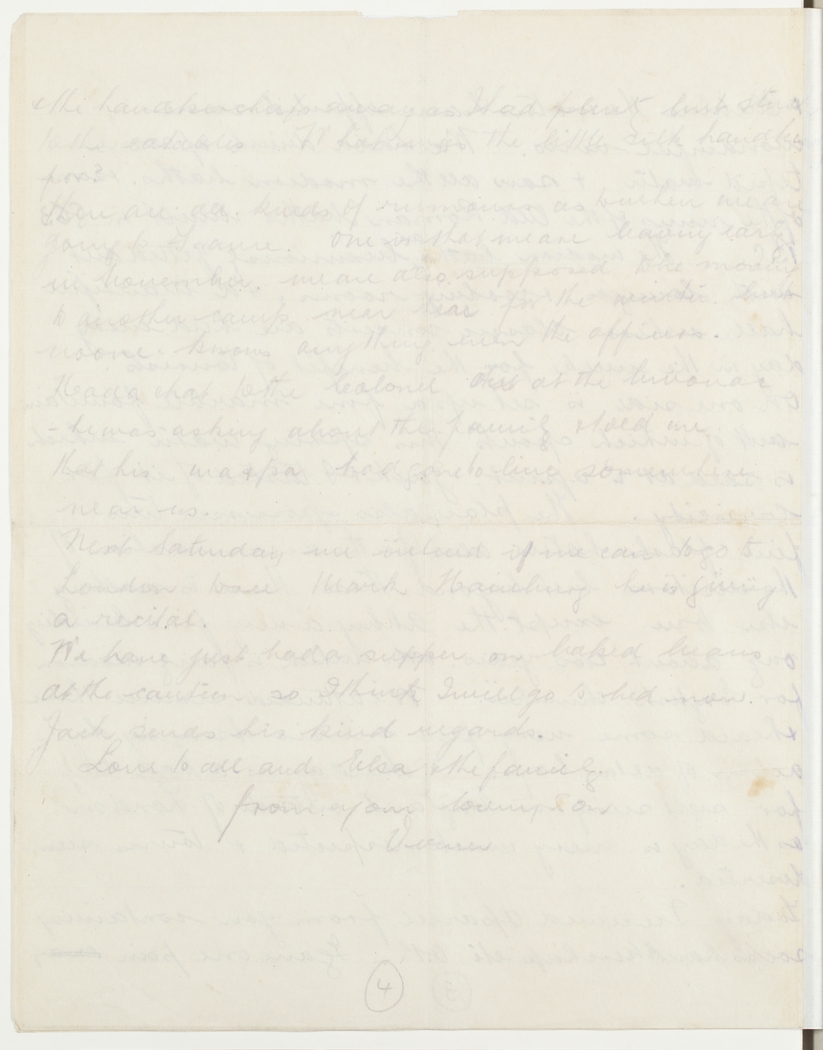 & the handkerchiefs away as I had plenty but stuck
to the eatables. I'll have to the little silk handker
There are all kinds of rumours as to when we are
going to France. One is that we are leaving early
in November. We are also supposed to be moving
to another camp near here for the winter. but
no one knows anything even the officers.
Had a chat to the Colonel at the
- he was asking about the family & told me
that his ma & pa had gone to live somewhere
near us.
Next Saturday we intend if we can to go to
London to see Mark Hambourg he is giving
a recital.
We have just had a supper on baked beans
at the canteen so I think I will go to bed now.
Jack sends his kind regards.
Love to all and Elsa & the family.
from your loving son
4